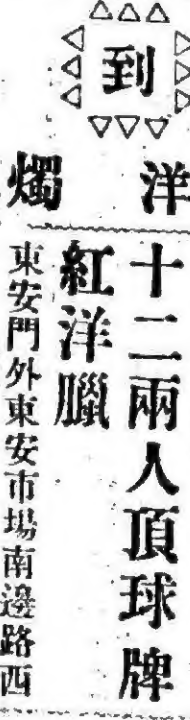 到
洋燭
十二兩人頂球牌
紅洋臘
東安門外東安市場南邊路西